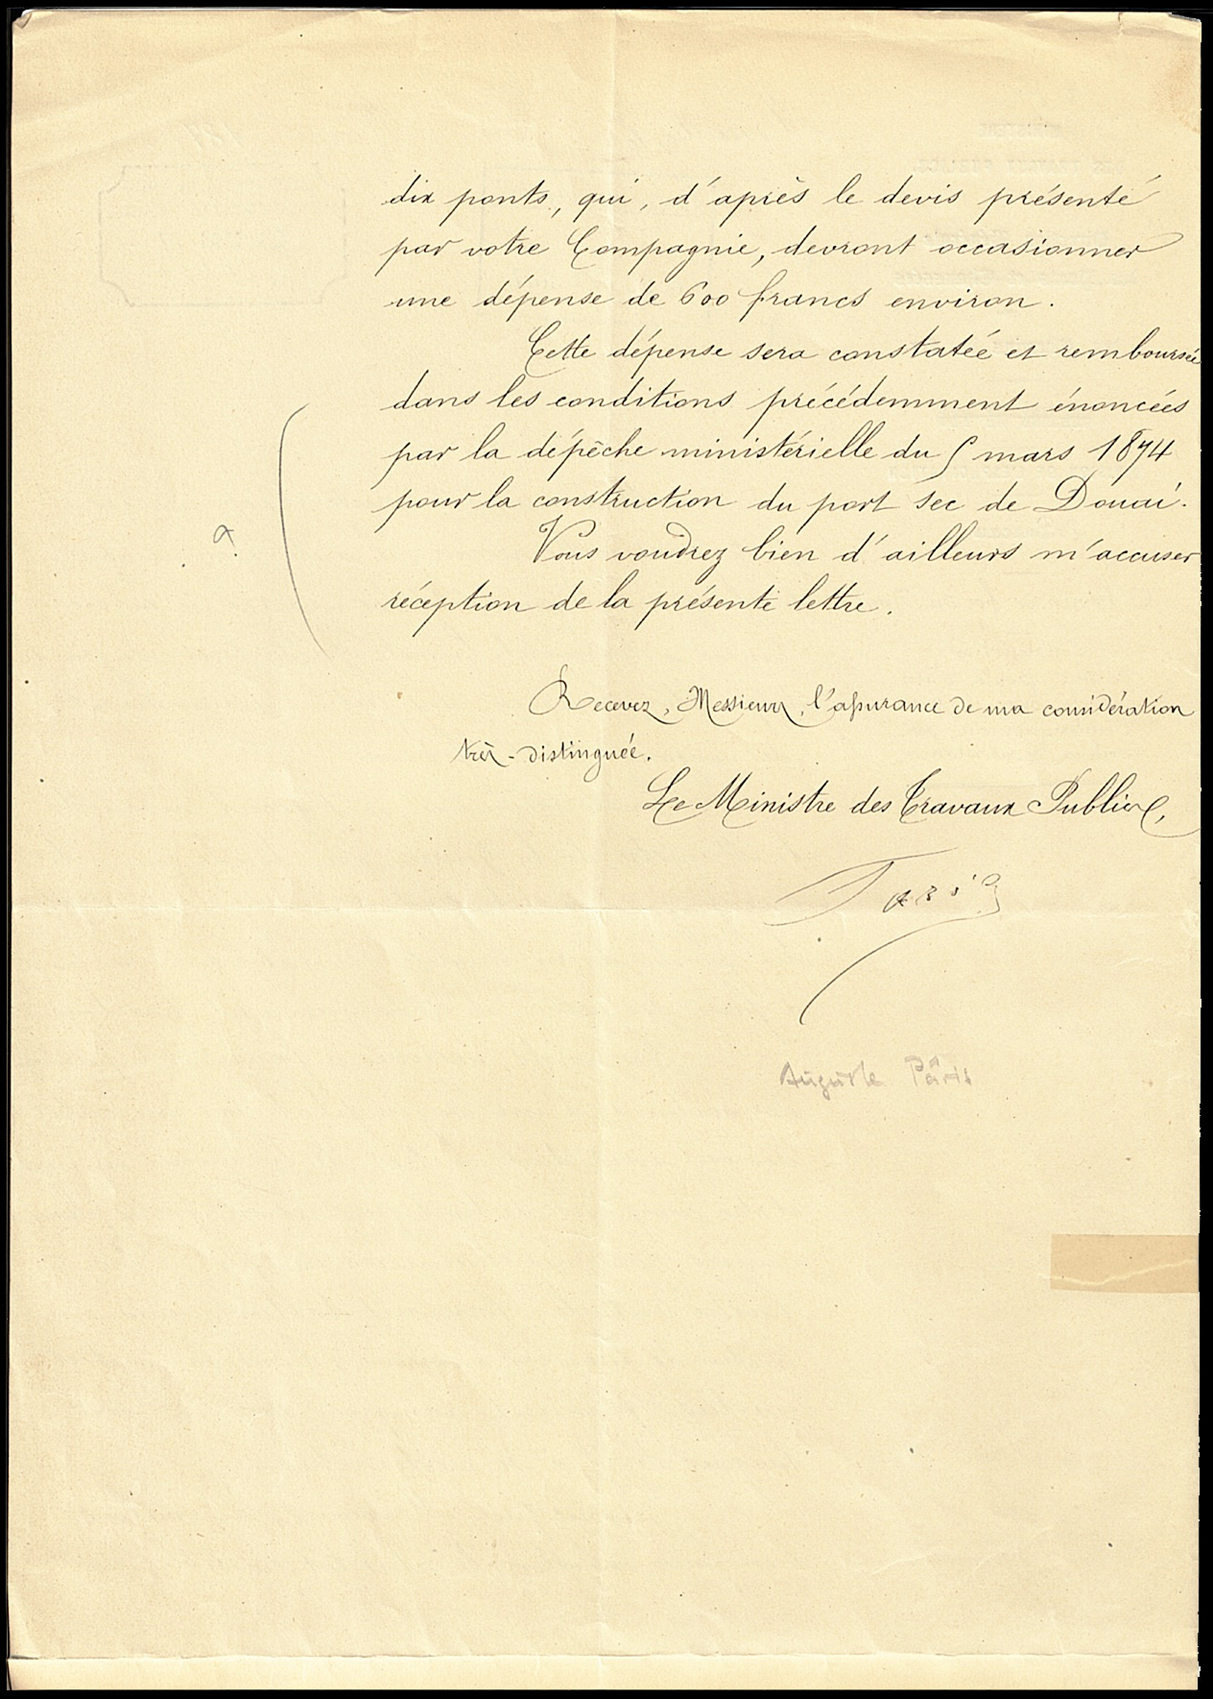 dix ponts, qui, d'après le devis présenté
par votre Compagnie, devront occasionner
une dépense de 600 francs environ.
Cette dépense sera constatée et remboursée
dans les conditions précédemment énoncées
par la dépêche ministérielle du 5 mars 1874
pour la construction du port sec de Douai.
Vous voudrez bien d'ailleurs m'accuser
réception de la présente lettre.
a
Recevez, Messieurs, l'assurance de ma considération
très-distinguée.
Le Ministre des Travaux Publics,
Paris
Auguste Pâris